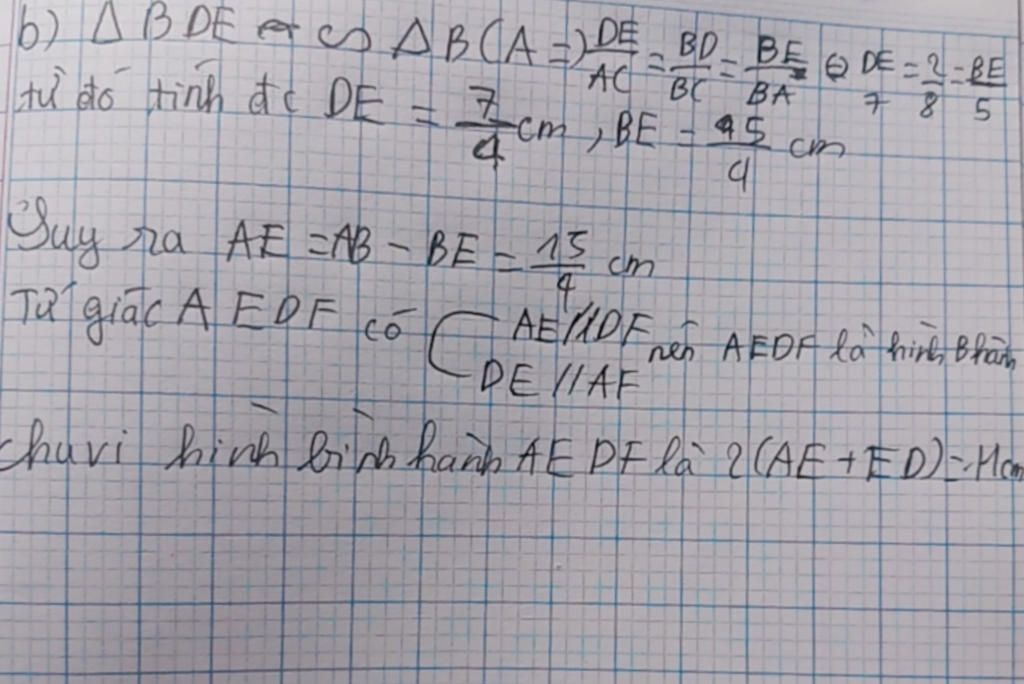 b) Δ BDE ∽ Δ BCA => DE/AC = BD/BC = BE/BA ⇔ DE/7 = 2/8 = BE/5
từ đó tính đc DE = 7/4 cm, BE = 45/4 cm
Suy ra AE = AB - BE = 15/4 cm
Tứ giác AEDF có { AE//DF DE//AF nên AEDF là hình B hành
chu vi hình bình hành AEDF là 2(AE+ED) = 11cm